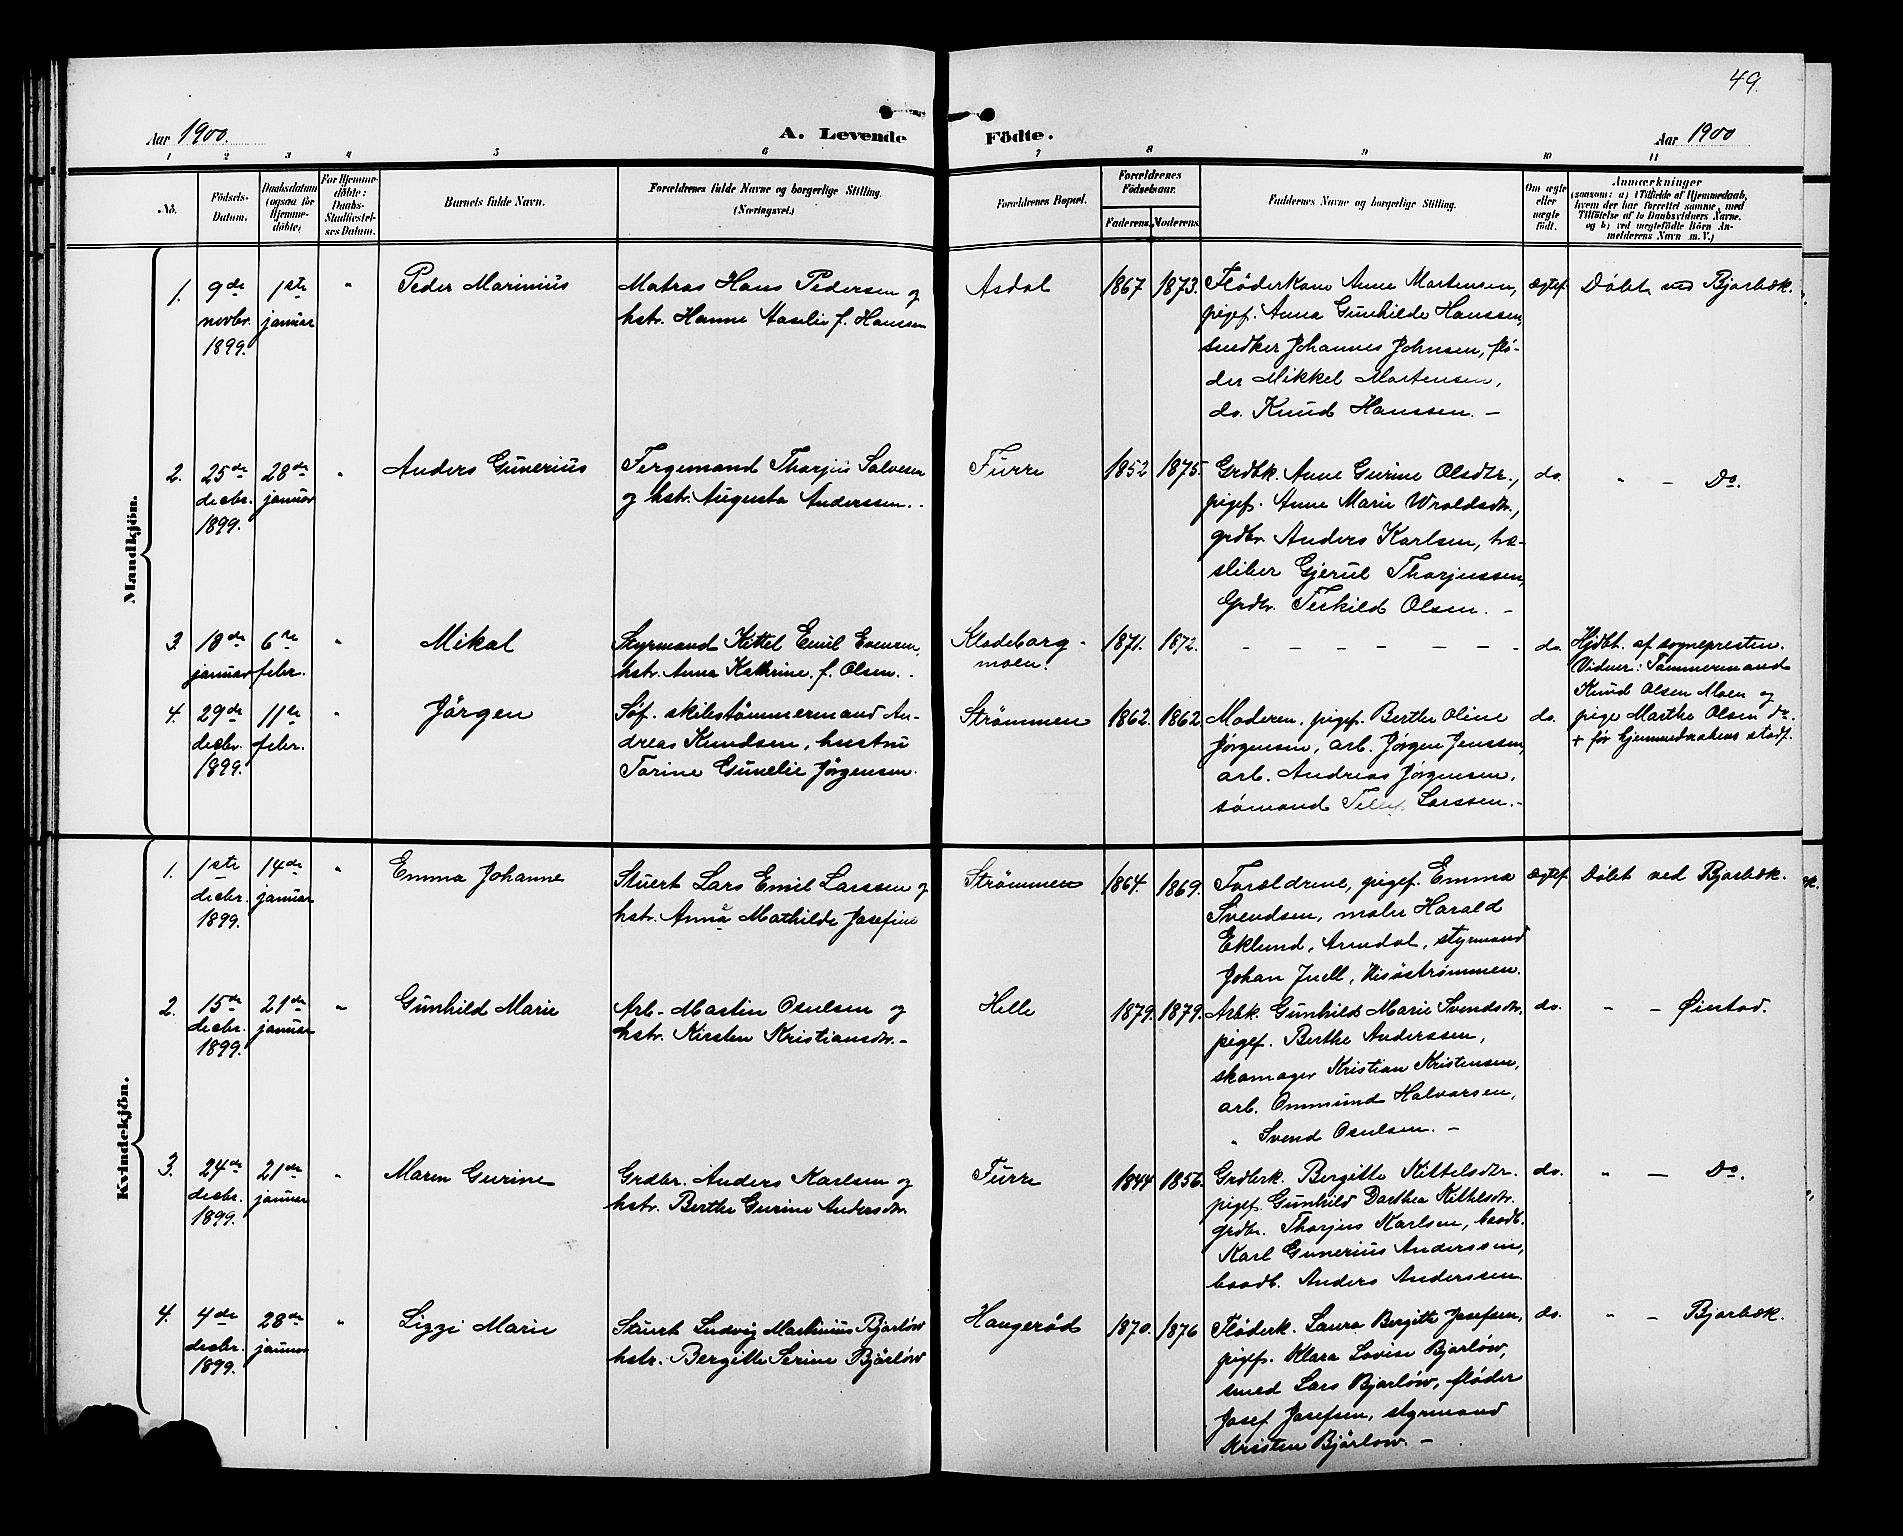 49.
Aar 1900.
A. Levende Födte.
Aar 1900
1 2 3 4 5 6 7 8 9 10 11
No.
Födsels-Datum.
Daabsdatum (ogsaa for Hjemme-döbte)
For Hjemme-döbte: Daabs-Stadfæstel-ses Datum.
Barnets fulde Navn.
Forældrenes fulde Navne og borgerlige Stilling. (Næringsvei.)
Forældrenes Bopæl.
Forældrenes Födselsaar.
Faderens. Moderens.
Faddernes Navne og borgerlige Stilling.
Om ægte eller uægte födt.
Anmærkninger
(saasom: a) i Tilfælde af Hjemmedaab,
hvem der har forrettet samme, med
Tilföielse af to Daabsvidners Navne,
og b) ved uægtefödte Börn An-
melderens Navn m. V.)
Mandkjön.
1. 9de novbr. 1899. 1ste januar " Peder Marinius
Matros Hans Pedersen og
hstr. Hanne Aaselie f. Hanssen
Asdal 1867 1873.
Fløderkone Anne Mortensen,
pigef. Anna Gunhilde Hanssen,
snedker Johannes Johnsen, flø-
der Mikkel Mortensen,
do. Knud Hanssen. -
ægtef. Døbt ved Bjorbæk.
2. 25de decbr. 1899. 28de januar " Anders Gunerius
Fergemand Thorjus Salvesen
og hstr. Augusta Anderssen.
Furre 1852 1875.
Grdbk. Anne Gurine Olsdtr.,
pigef. Anne Marie Wroldsdtr.,
grdbr. Anders Karlsen, træ-
sliber Gjerul Thorjussen,
Grdbr. Terkild Olsen. -
do. " - Do.
3. 18de januar 6te febr. " Mikal
Styrmand Kittel Emil Evensen,
hstr. Anna Kathrine f. Olsen.
Klodeborg-
moen. 1871. 1872.
- - - - - - -
do. Hjdbt. af sognepresten.
Vidner: Tømmermand
Knud Olsen Moen og
pige Marthe Olsen do.
+ før hjemmedaabens stadf.
4. 29de decbr. 1899. 11te febr. " Jörgen
Søf. skibstømmermand An-
dreas Knudsen, hustru
Tarine Gunelie Jørgensen.
Strømmen 1862. 1862
Moderen, pigef. Berthe Oline
Jørgensen, arb. Jørgen Jenssen,
arb. Andreas Jørgensen,
sømand Tellef Larssen. -
do.
Kvindekjön.
1. 1ste decbr. 1899. 14de januar " Emma Johanne
Stuert Lars Emil Larssen og
hstr. Anna Mathilde Josefine
Strømmen 1864. 1869.
Forældrene, pigef. Emma
Svendsen, maler Harald
Eklund, Arendal, styrmand
Johan Juell, Hisøstrømmen.
ægtef Døbt ved Bjorbæk.
2. 15de decbr. 1899. 21de januar " Gunhild Marie
Arb. Martin Osulsen og
hstr. Kirsten Kristiansdtr. -
Helle 1879. 1879.
Arbk. Gunhild Marie Svendsdtr.
pigef. Berthe Anderssen,
skomager Kristian Kristensen,
arb. Ommund Halvorsen,
" Svend Osulsen. -
do. " - Øiestad.
3. 24de decbr. 1899. 21de januar " Maren Gurine
Grdbr. Anders Karlsen og
hstr. Berthe Gurine Andersdtr.
Furre 1844 1856.
Grdbrk. Bergitte Kittelsdtr.
pigef. Gunhild Dorthea Kittelsdtr.
grdbr. Thorjus Karlsen, baadb.
Karl Gunerius Anderssen,
baadb. Anders Anderssen.
do. " - Do.
4. 4de decbr. 1899. 28de januar " Lizzi Marie
Stuert Ludvig Martinius Bjorløw
hstr. Bergitte Serine Bjørløw
Haugerød 1870. 1876
Fløderk. Laura Bergitte Josefsen,
pigef. Klara Lovise Bjorløw,
smed Lars Bjorløw, fløder
Josef Josefsen, styrmand
Kristen Bjørløw. -
do. " - Bjorbæk.